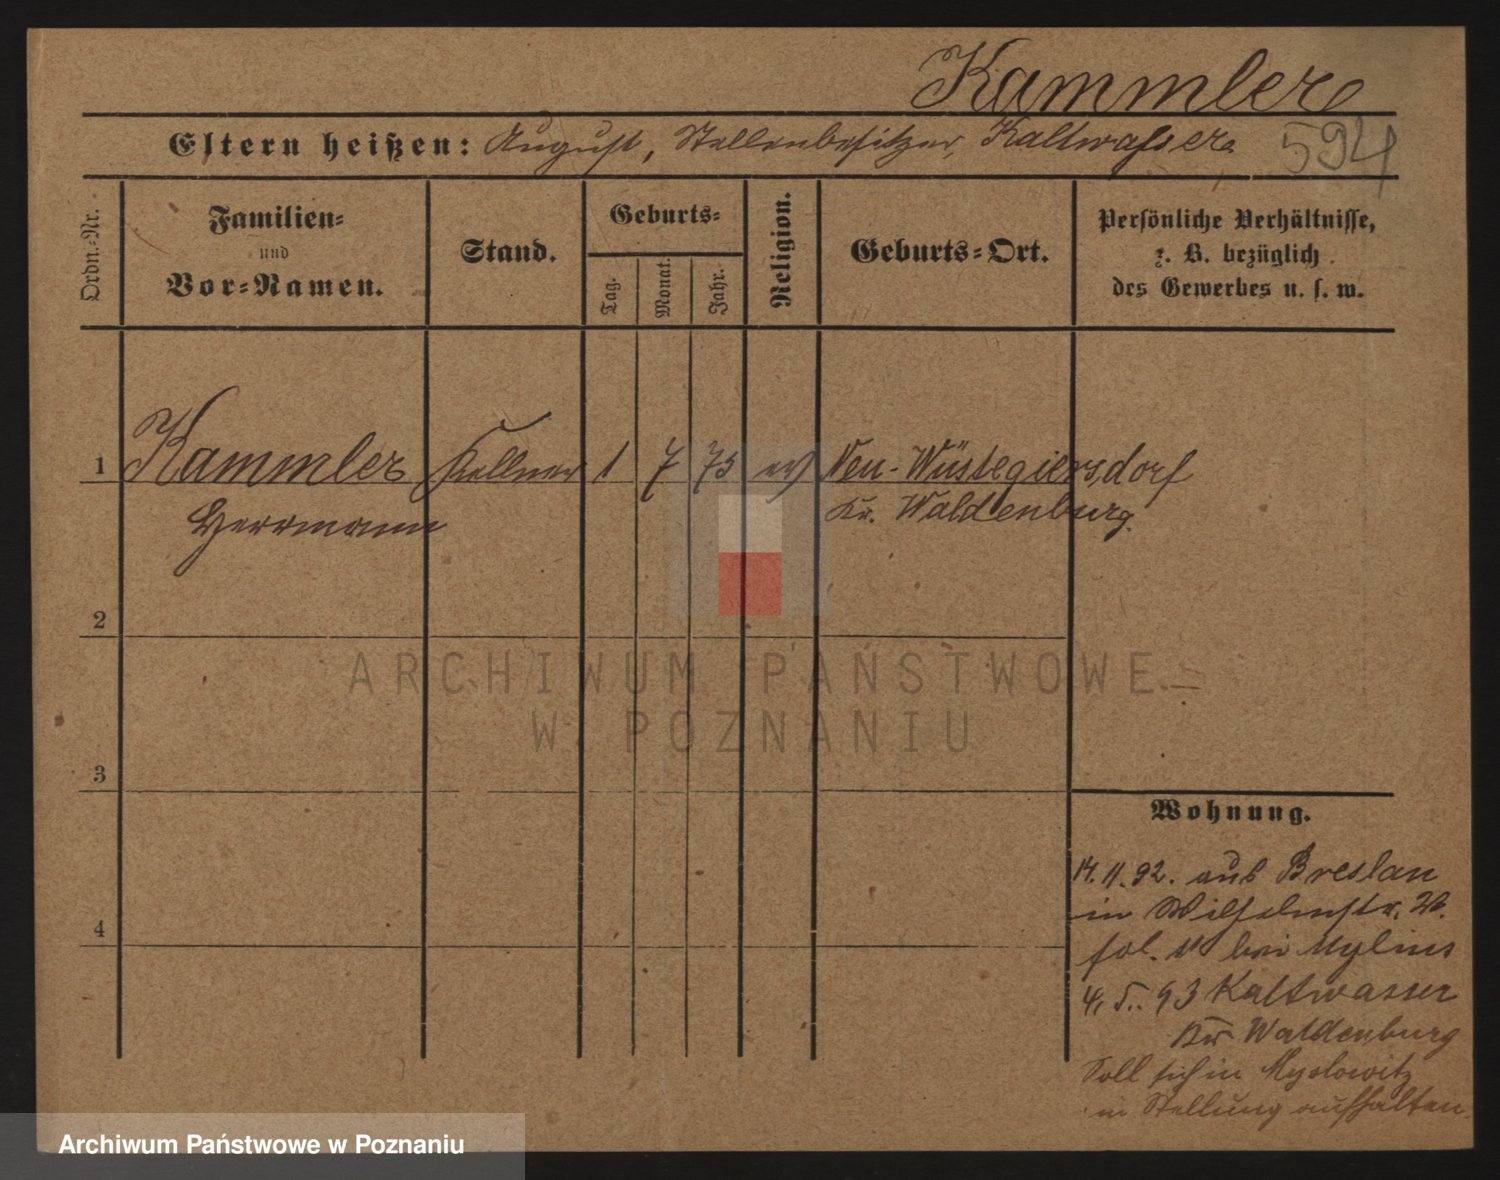 Kammler
Eltern heißen: August, Stellenbesitzer, Kaltwasser
594
Ordn.-Nr.
Familien-
und
Vor-Namen.
Stand.
Geburts-
Tag.
Monat.
Jahr.
Religion.
Geburts-Ort.
Persönliche Verhältnisse,
z. B. bezüglich
des Gewerbes u. s. w.
1 Kammler Kellner 1 7 75 ev Neu-Wüstegiersdorf
Herrmann Kr. Waldenburg.
2
3
4
Wohnung.
14. 11. 92. aus Breslau
in Wilhelmstr. 20.
bei Mylius
4. 5. 93 Kaltwasser
Kr Waldenburg
Soll sich in Myslowitz
in Stellung aufhalten.
ARCHIWUM PAŃSTWOWE
W POZNANIU
Archiwum Państwowe w Poznaniu